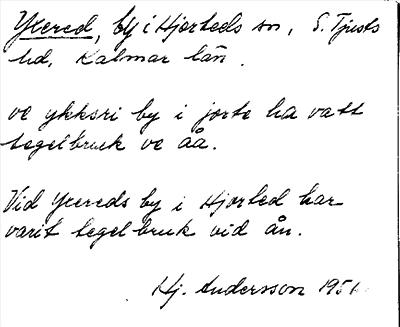 Yxered, by i Hjorteds sn, S. Tjusts
hd, Kalmar län.
ve ykksri by i jorte ha vatt
tegelbruk ve åa.
Vid Yxereds by i Hjorted har
varit tegelbruk vid ån.
Hj. Andersson 1951